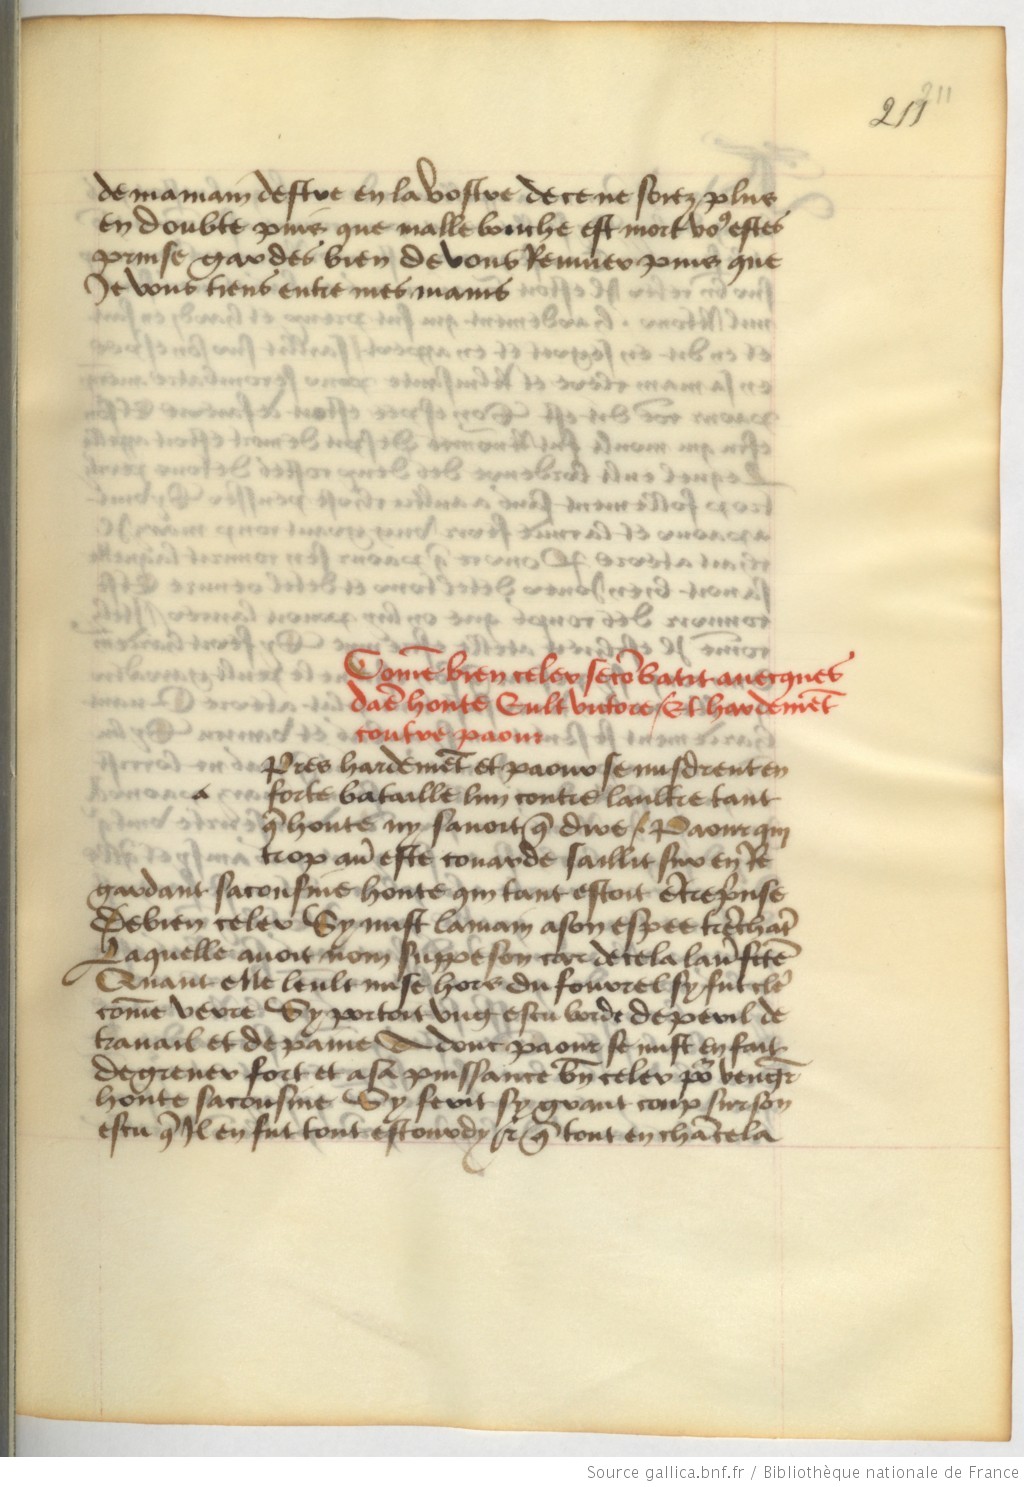 211
211
de ma main destre en la vostre de ce ne soiez plus
en doubte puis que malle bouche est mort vo9 estes
prinse gardes bien de vous Remuer puis que
Je vous tiens entre mes mains
Com̄e bien celer se cōbatit auecques
daē honte Eult victore / Et hardemēt
contre paour
Pres hardemēt et paour se misdrent en
a forte bataille lun contre laultre tant
q̄ honte ny sauoit q̄ dire / Paour qui
trop au᷑ este couarde saillit sur en Re
gardant sa cousine honte qui tant estoit ētrep̄nse
De bien celer Sy mist la main a son espee trēchāt
Laquelle auoit nom suppeson car de cela lau᷑
Quant elle leult mise hors du fourrel sy fut cle᷑
com̄e verre Sy portoit vng escu borde de peril de
trauail et de paine Adonc paour se mist en fait
de greuer fort et a sā puissance bn̄ celer po᷑ veng᷑
honte sa cousine Sy ferit sy grant coup sur son
escu q̄ Il en fut tout estourdy q̄ tout en chācela
Source gallica.bnf.fr / Bibliothèque nationale de France